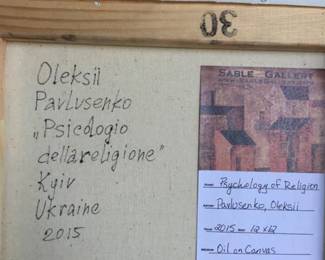 30
Oleksii
Pavlusenko
„Psicologio
dellareligione"
Kyiv
Ukraine
2015
SABLE GALLERY
Psychology of Religion
Pavlusenko, Oleksii
2015 — 12 x 12
Oil on Canvas